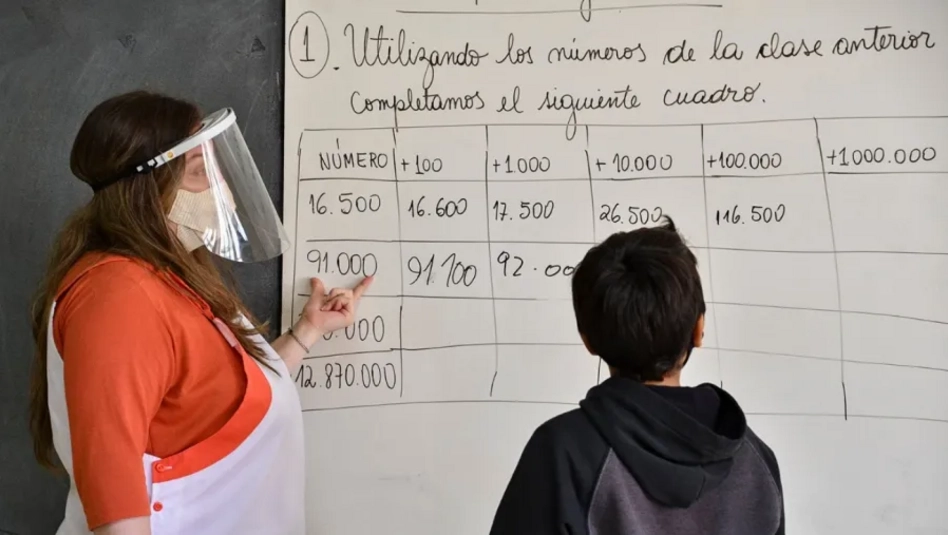 1. Utilizando los números de la clase anterior
completamos el siguiente cuadro.
NÚMERO +100 +1.000 +10.000 +100.000 +1000.000
16.500 16.600 17.500 26.500 116.500
91.000 91.100
12.870.000